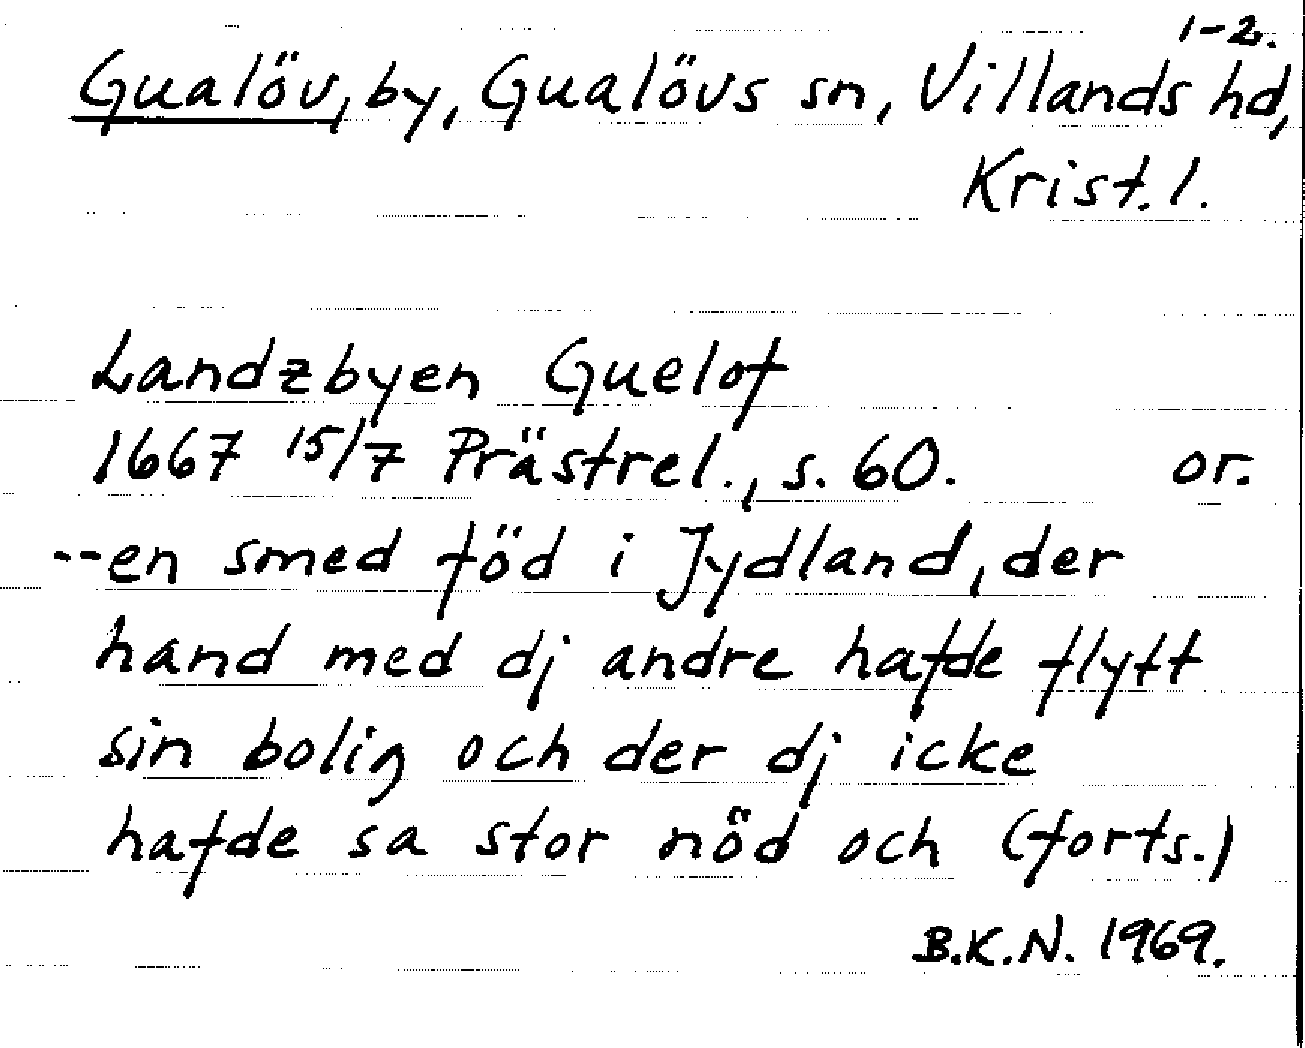 1-2.
Gualöv, by, Gualövs sn, Villands hd,
Krist. l.
Landzbyen Guelof
1667 15/7 Prästrel., s. 60. or.
--en smed föd i Jydland, der
hand med dj andre hafde flytt
sin bolig och der dj icke
hafde sa stor nöd och (forts.)
B.K.N. 1969.